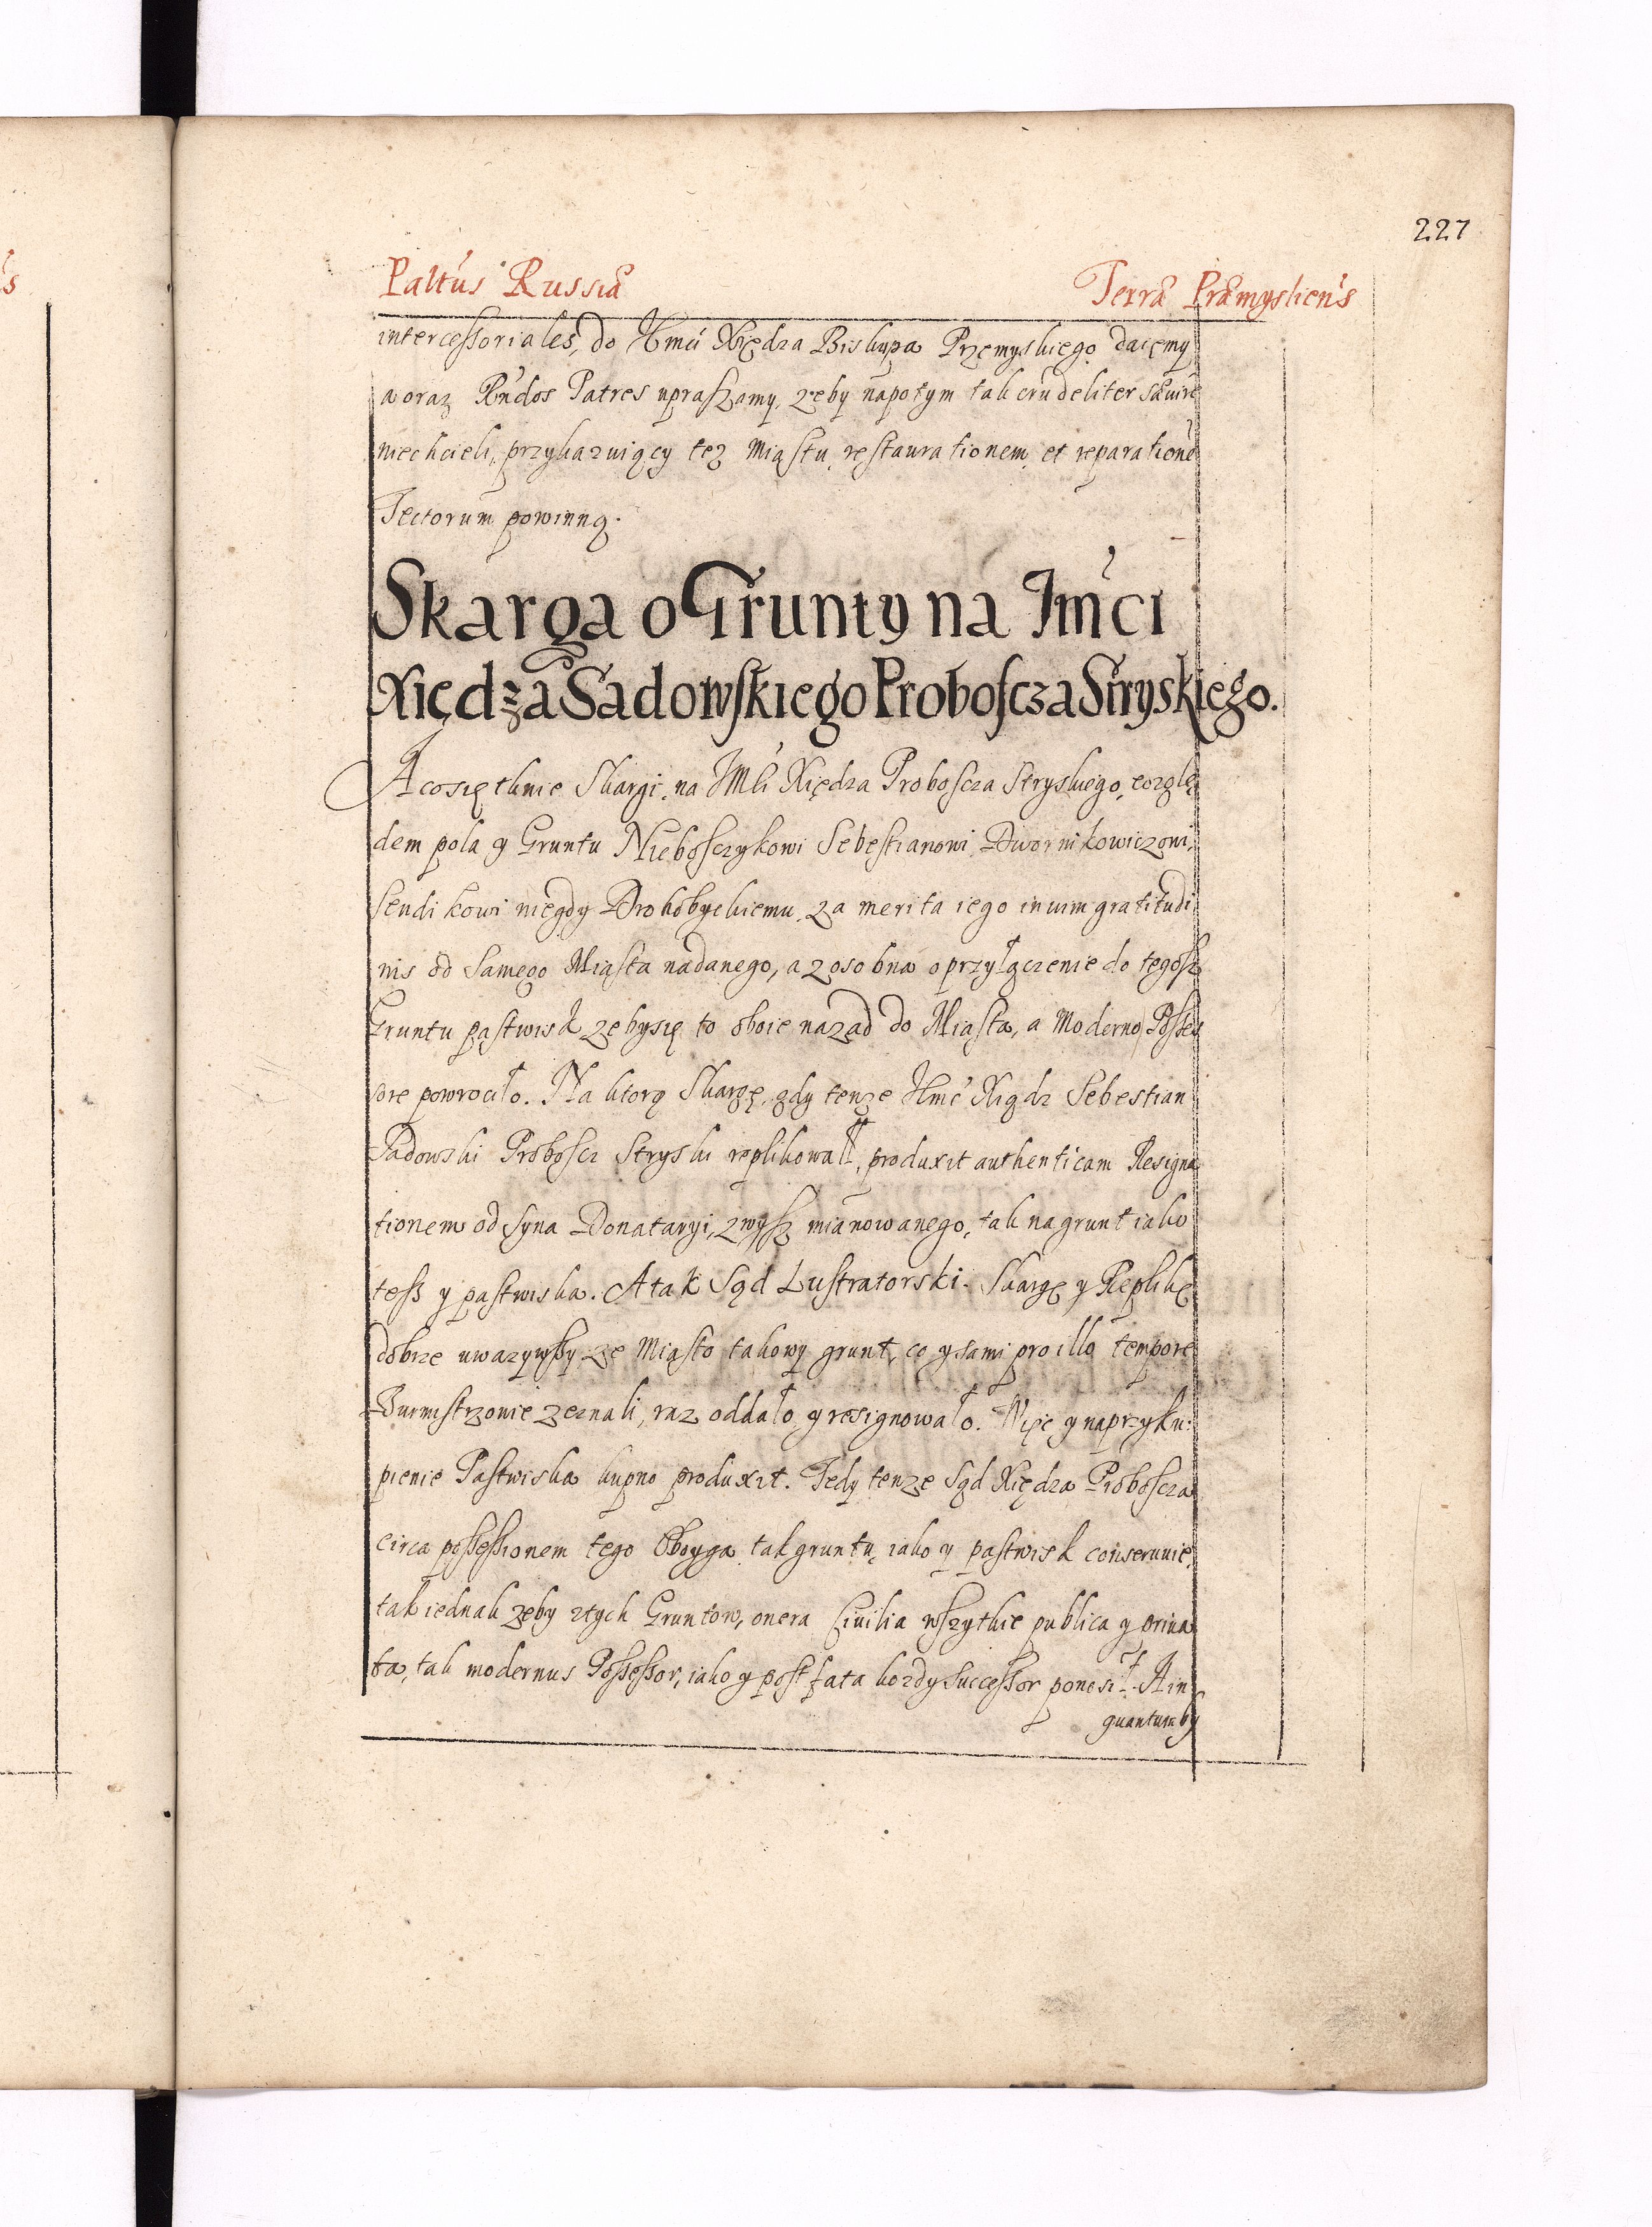 227
Paltus Russiæ Terræ Præmysliens
intercessoriales, do Jmci Xiędza Biskupa Przemyskiego daięmy
a oraz Rndos Patres upraszamy, zeby napotym tak crudeliter sæuire
niechcieli, przykazuiący tez Miastu restaurationem et reparatione
Tectorum powinną.
Skarga o Grunty na Jmci
Xiędza Sadowskiego Proboscza Stryskiego.
A co się tknie Skargi, na JMci Xiędza Proboscza Stryskiego, wzglę
dem pola y Gruntu Nieboszczykowi Sebestianowi Dwornikowiczowi,
Sendikowi niegdy Drohobyckiemu, za merita iego in vim gratitudi
nis od Samego Miasta nadanego, a zosobna o przyłączenie do tegosz
Gruntu pastwisk zeby się to oboie nazad do Miasta, a Moderno Posses
sore powrociło. Na ktorą Skargę, gdy tenze Jmc Xiądz Sebestian
Sadowski Proboscz Stryski replikował, produxit authenticam Resigna
tionem od Syna Donataryi, zwysz mianowanego, tak na grunt iako
tesz y pastwiska. A tak Sąd Lustratorski. Skargę y Replikę
dobrze uwazywszy ze Miasto takowy grunt, co y sami pro illo tempore
Burmistrzowie zeznali, raz oddało y resignowało. Więc y na przyku:
pienie Pastwiska kupno produxit. Tedy tenze Sąd Xiędza Proboscza
circa possessionem tego Oboyga tak gruntu, iako y pastwisk conseruuie,
tak iednak zeby z tych Gruntow, onera Ciuilia wszytkie publica y priua
ta, tak modernus Possessor, iako y post fata kozdy Successor ponosił. A in
quantum by